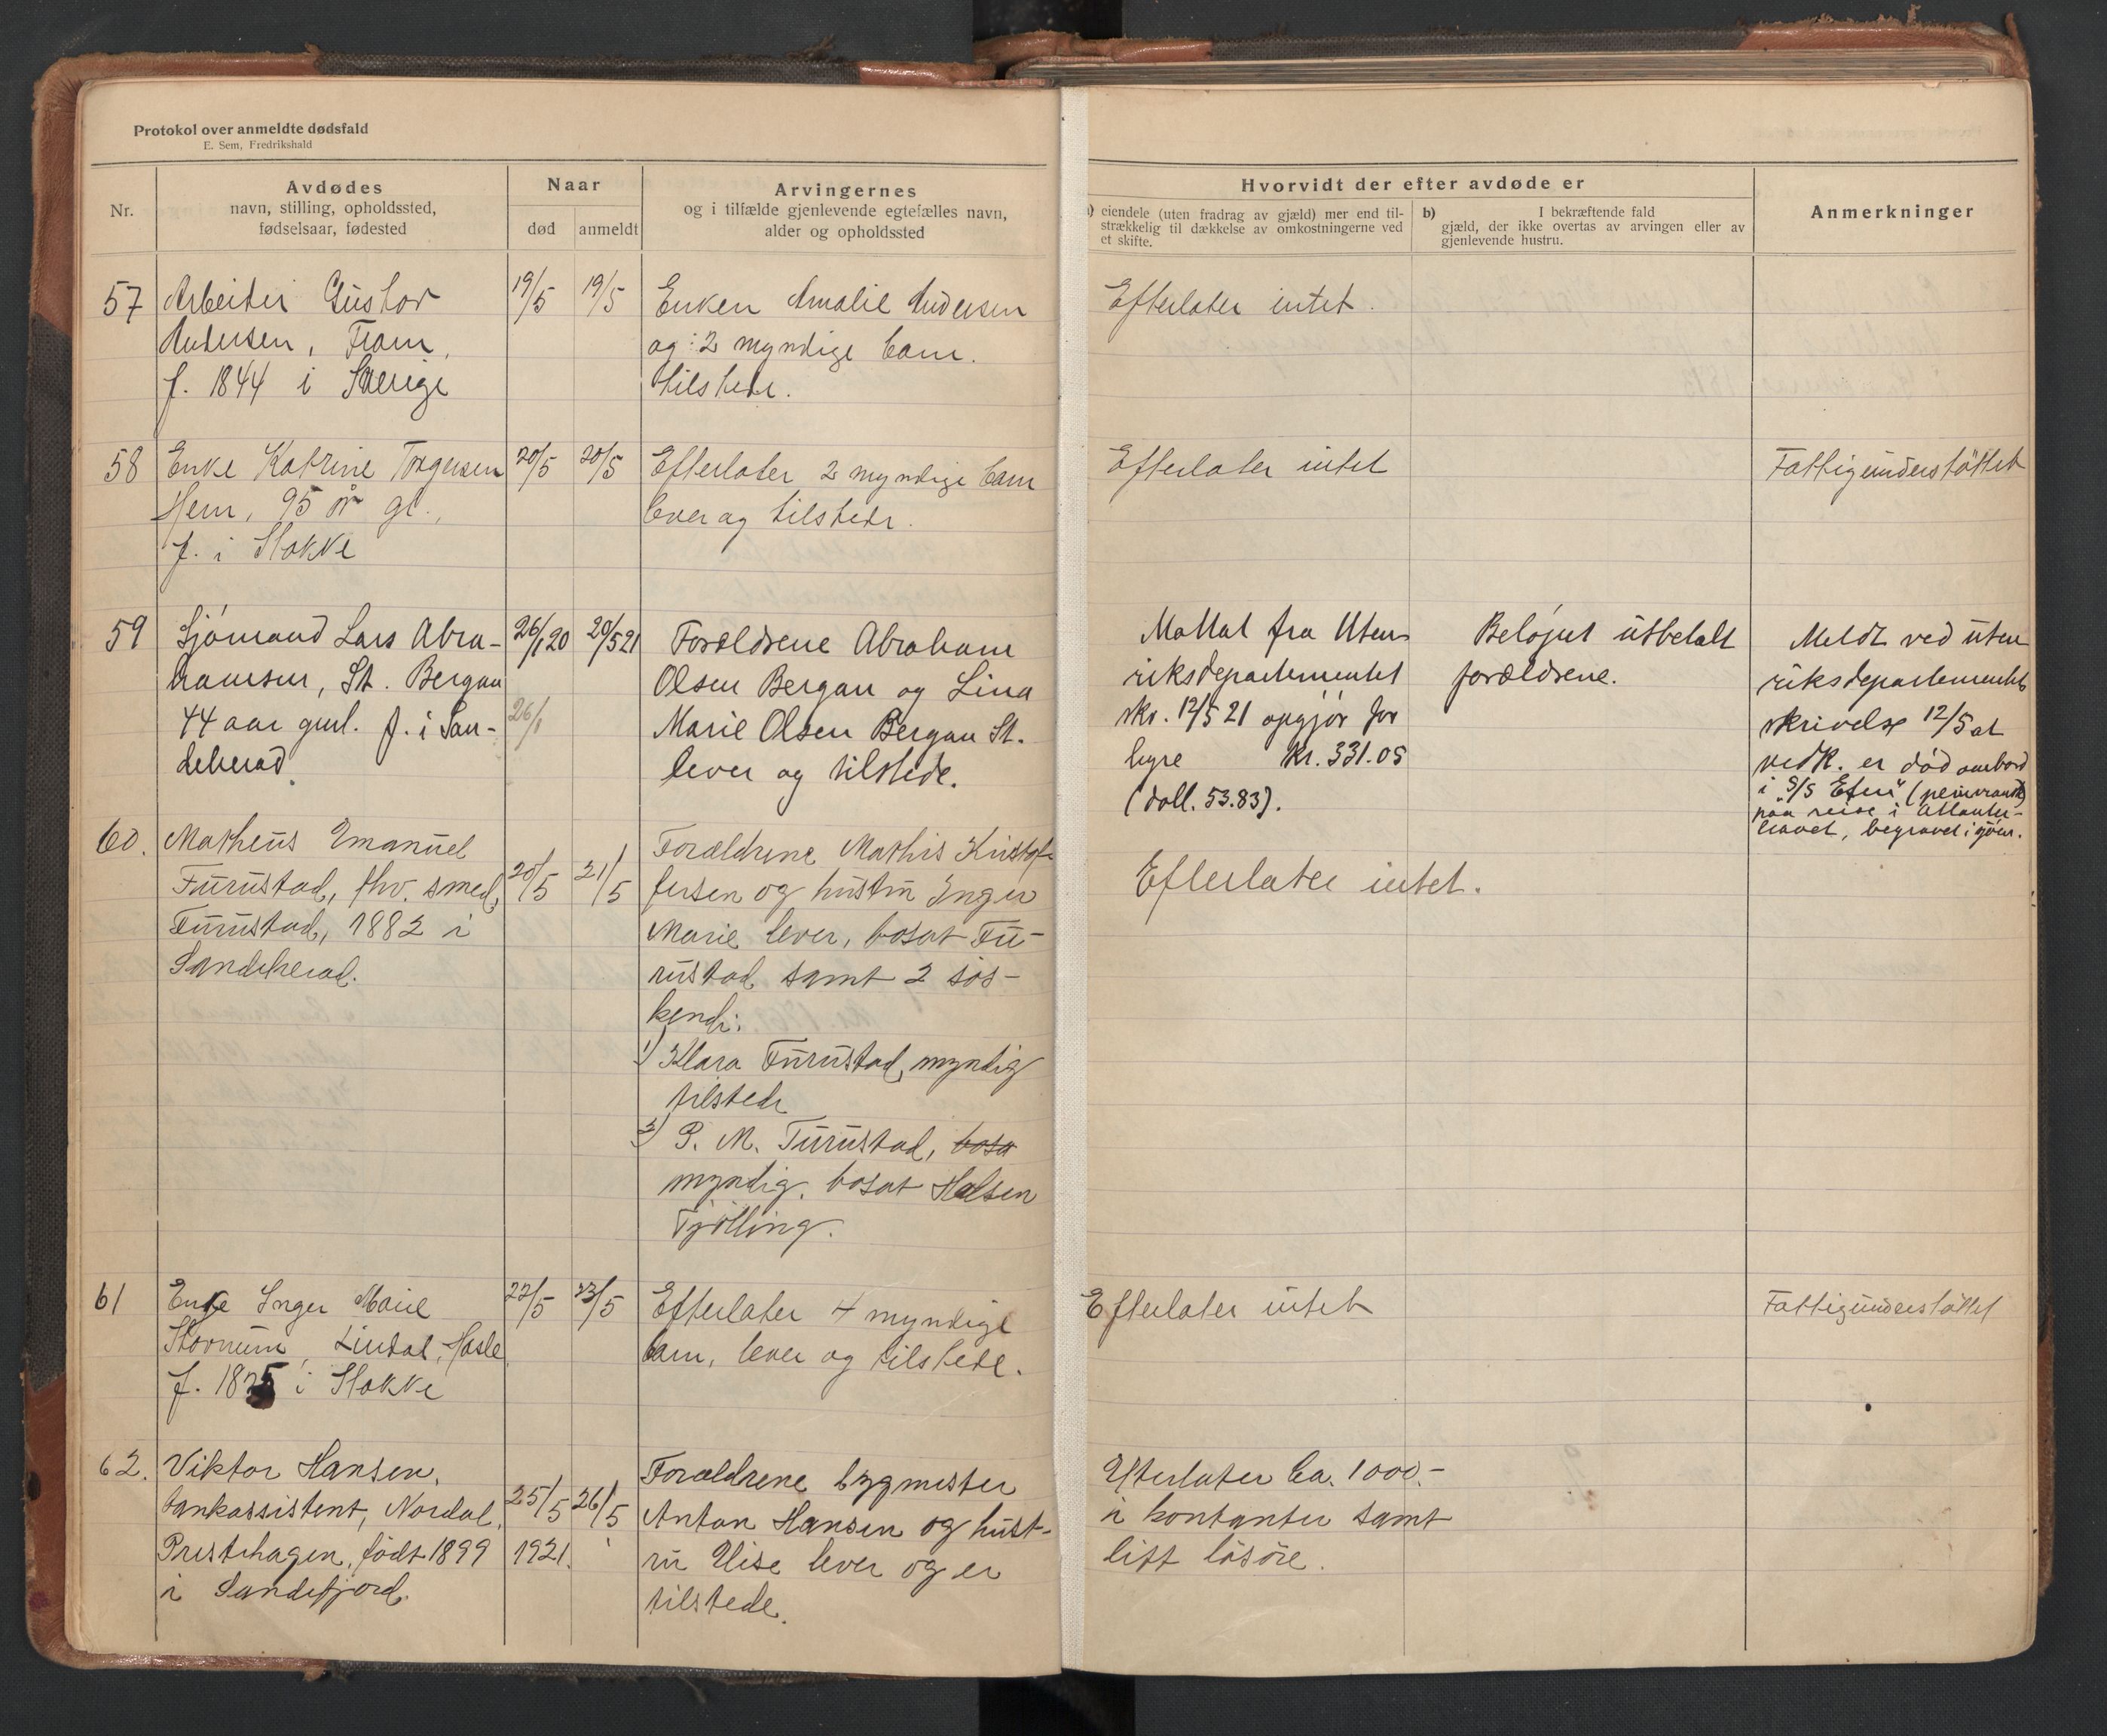 Protokol over anmeldte dødsfald
E. Sem, Fredrikshald
Nr.
Avdødes
navn, stilling, opholdssted,
fødselsaar, fødested
Naar
død
anmeldt
Arvingernes
og i tilfælde gjenlevende egtefælles navn,
alder og opholdssted
Hvorvidt der efter avdøde er
a) eiendele (uten fradrag av gjæld) mer end til-
strækkelig til dækkelse av omkostningerne ved
et skifte.
b) I bekræftende fald
gjæld, der ikke overtas av arvingen eller av
gjenlevende hustru.
Anmerkninger
57
Arbeider Gustav
Andersen, Fram,
f. 1844 i Sverige
19/5
19/5
Enken Amalie Andersen
og 2 myndige barn.
tilstede.
Efterlater intet.
58
Enke Katrine Torgersen
Hem, 95 år gl.,
f. i Stokke
20/5
20/5
Efterlater 2 myndige barn
lever og tilstede.
Efterlater intet
Fattigunderstöttet
59
Sjömand Lars Abra-
hamsen, St. Bergan
44 aar gml. f. i San-
deherad.
26/1 20
26/1
20/5 21
Forældrene Abraham
Olsen Bergan og Lina
Marie Olsen Bergan St.
lever og tilstede.
Mottat fra Uten-
riksdepartementet
skr. 12/5 21 opgjör for
hyre kr. 331.05
(doll. 53.83).
Belöpet utbetalt
forældrene.
Meldt ved uten
riksdepartementets
skrivelse 12/5 at
vedk. er död ombord
i S/S
paa reise i Atlanter-
havet, begravet i sjöen.
60.
Matheus Emanuel
Furustad, fhv. smed,
Furustad, 1882 i
Sandeherad.
20/5
21/5
Forældrene Mathis Kristof-
fersen og hustru Inger
Marie lever, bosat Fu-
rustad samt 2 sös-
kende:
1) Klara Furustad, myndig
tilstede
2) P. M. Furustad, bosa
myndig, bosat Halsen
Tjölling.
Efterlater intet.
61
Enke Inger Marie
Stovnum, Lindal, Hasle
f. 18 5 i Stokke
22/5
23/5
Efterlater 4 myndige
barn, lever og tilstede.
Efterlater intet
Fattigunderstöttet
62.
Viktor Hansen,
bankassistent, Nordal,
Prestehagen, födt 1899
i Sandefjord.
25/5
1921.
26/5
Forældrene bygmester
Anton Hansen og hust-
ru Elise lever og er
tilstede.
Efterlater ca. 1000.-
i kontanter samt
litt lösöre.